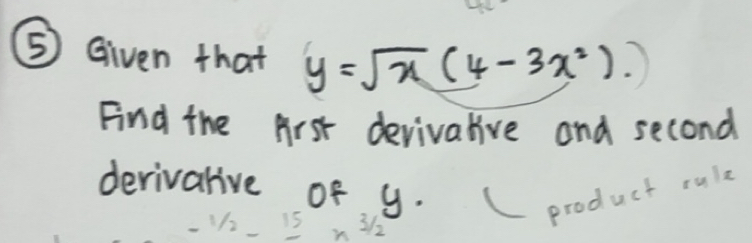 ⑤ Given that y = √x (4 - 3x²).
Find the first derivative and second
derivative of y. ( product rule
- 1/2 - 15 x 3/2